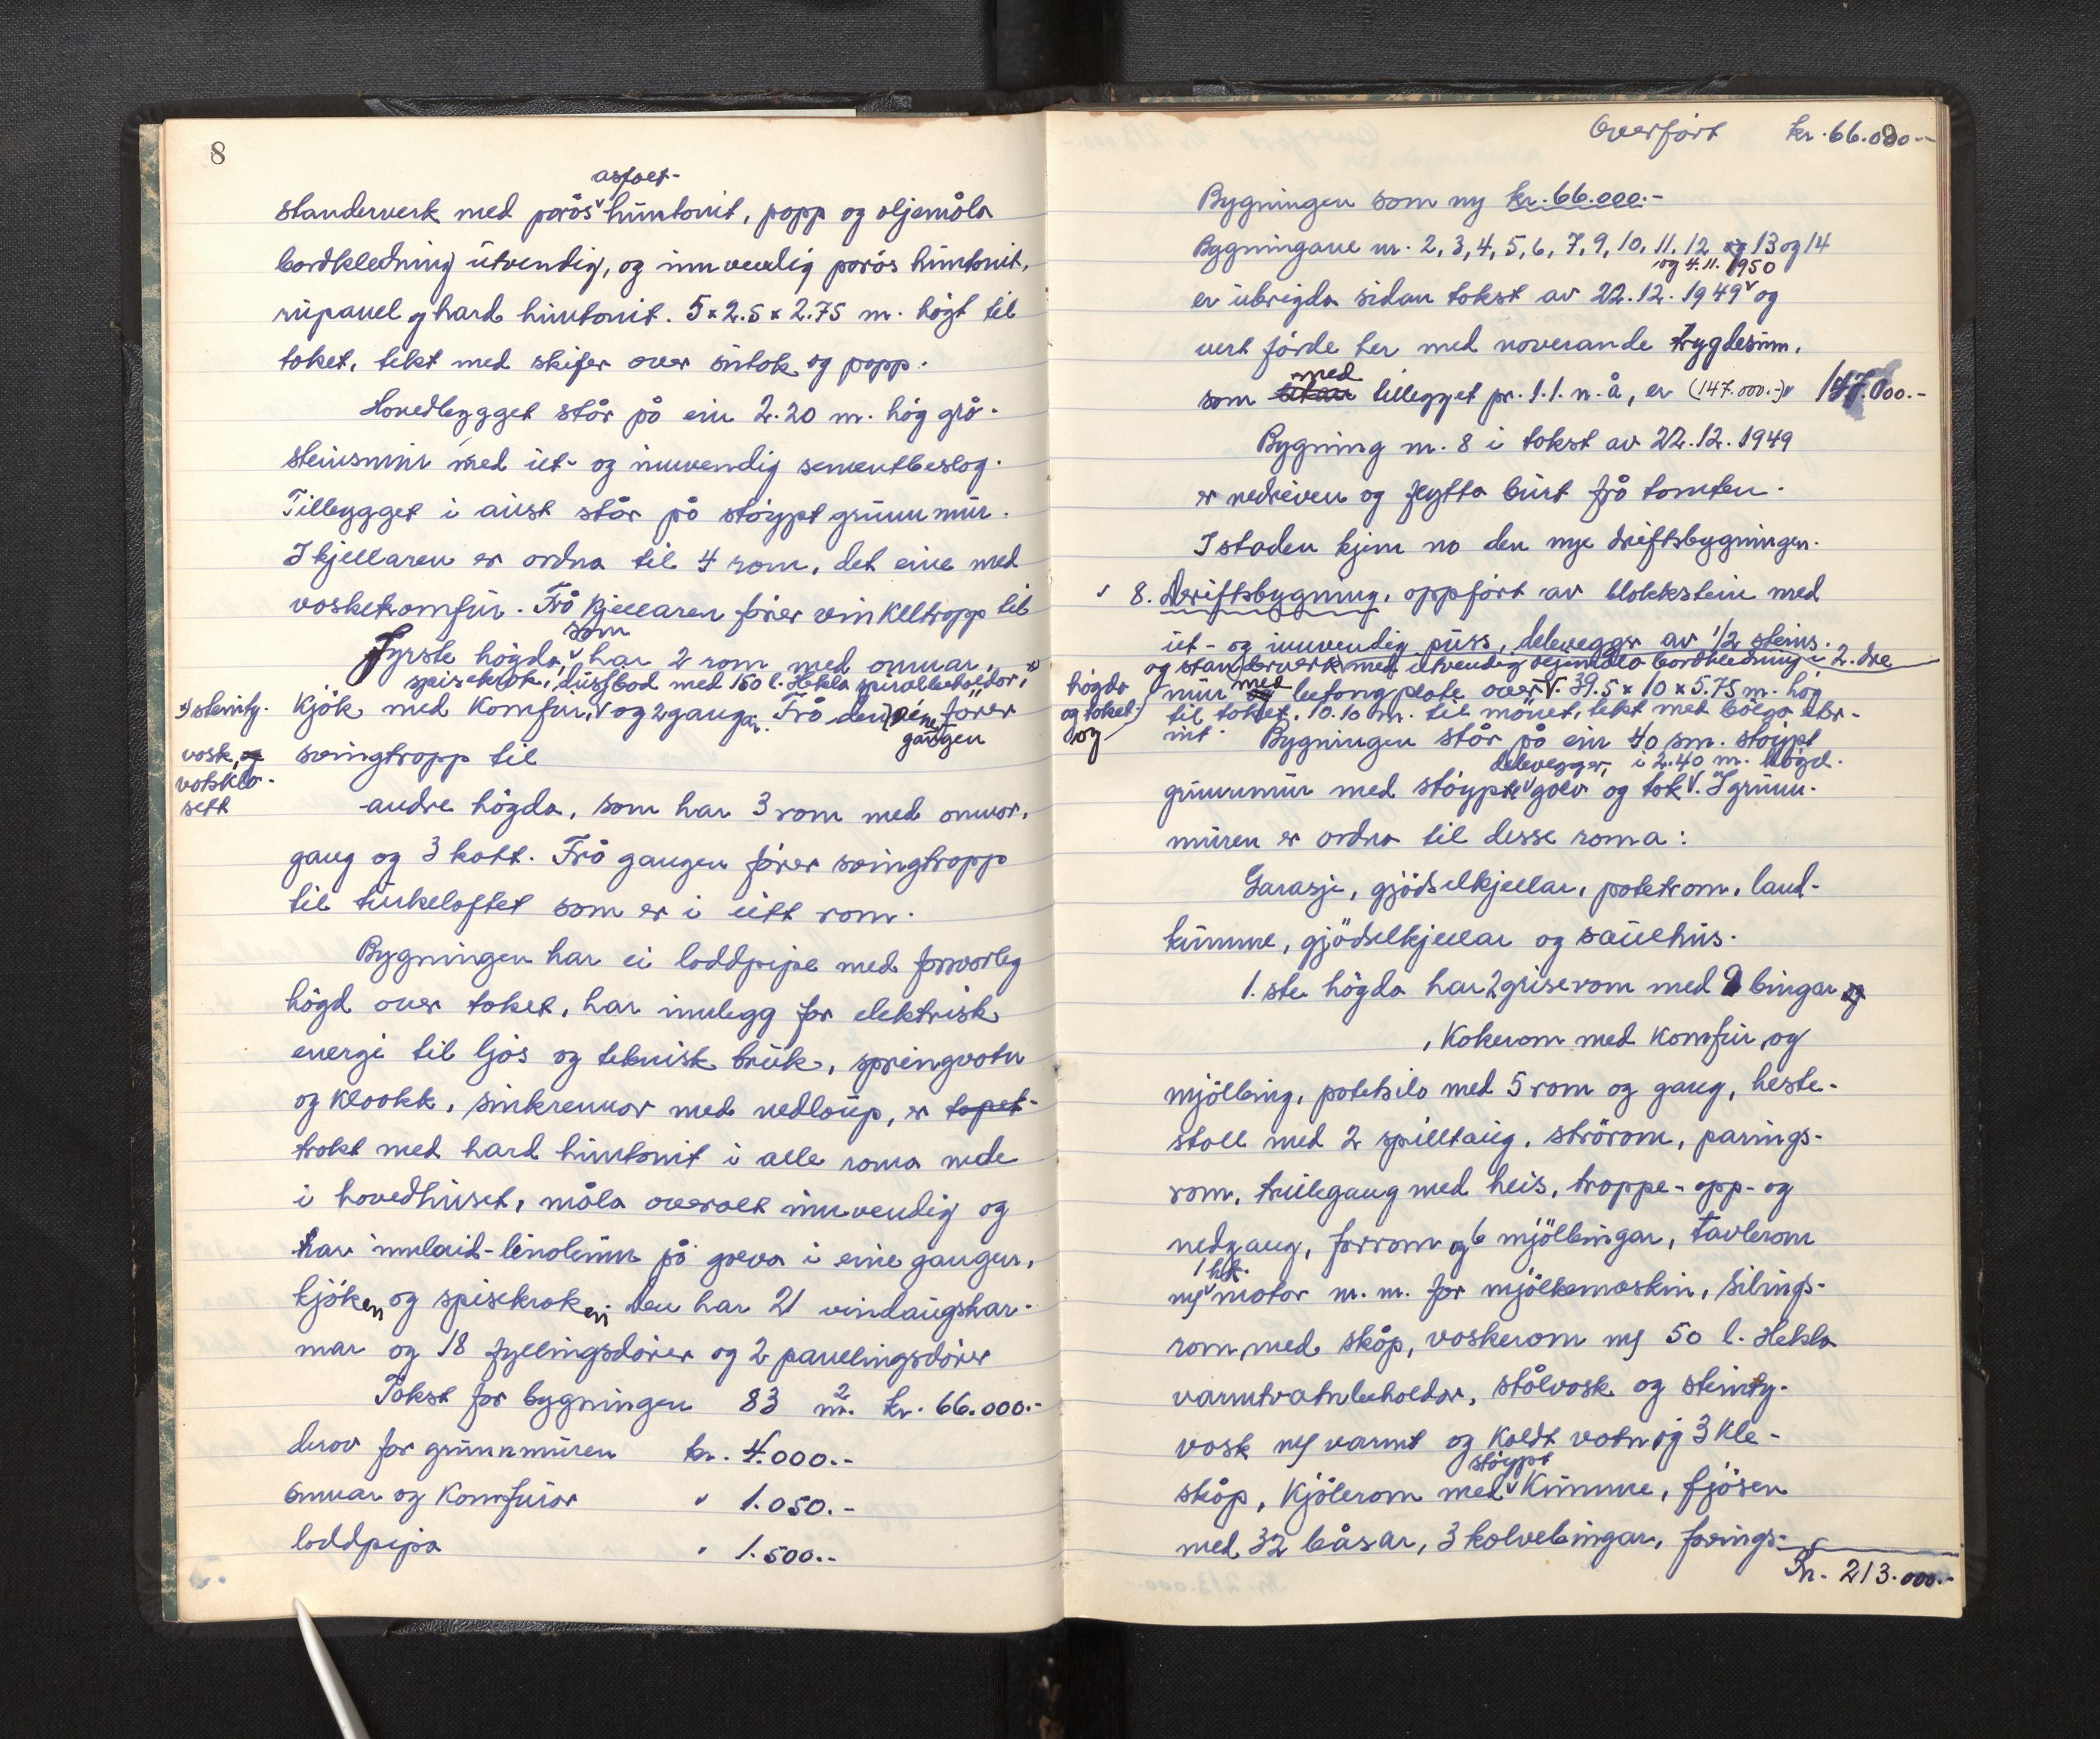 8
asfalt-
standerverk med porös huntonit, papp og oljemåla
bordkledning utvendig, og innvendig porös huntonit,
rupanel og hard huntonit. 5 x 2.5 x 2.75 m. högt til
taket, tekt med skifer over sutak og papp.
Hovedbygget står på ein 2.20 m. hög grå-
steinsmur med ut- og innvendig sementbeslag.
Tillbygget i aust står på stöypt grunnmur.
I kjellaren er ordna til 4 rom, det eine med
vaskekomfur. Frå kjellaren förer vinkeltrapp til
som
Fyrste högda, har 2 rom med omnar,
spisekrok, dusjbod med 150 l. Hekla spiralbeholdar, x)
x) steinty- kjök med komfur, og 2 gangar. Frå den eine förer
gangen
vask, og svingtrapp til
vatsklo-
sett
andre högda, som har 3 rom med omnar,
gang og 3 kott. Frå gangen förer svingtrapp
til turkeloftet som er i eitt rom.
Bygningen har ei loddpipe med forsvarleg
högd over taket, har innlegg for elektrisk
energi til ljos og teknisk bruk, springvatn
og kloakk, sinkrennor med nedlaup, er tapet-
trekt med hard huntonit i alle roma nede
i hovedhuset, måla overalt innvendig og
har innlaid-linoleum på golva i eine gangen,
kjöken og spisekroken. Den har 21 vindaugskar-
mar og 18 fyllingsdörer og 2 panelingsdörer
Takst for bygningen 83 m². kr. 66.000.-
derav for grunnmuren kr. 4.000.-
omnar og komfurar " 1.050.-
loddpipa " 1.500.-
Overfört kr. 66.000.-
Bygningen som ny kr. 66.000.-
Bygningane nr. 2, 3, 4, 5, 6, 7, 9, 10, 11, 12 og 13 og 14
og 4.11. 1950
er ubrigda sidan takst av 22.12.1949 og
vert förde her med noverande trygdesum,
med
som utan tillegget pr. 1.1. n.å, er (147.000.-) 147.000.-
Bygning nr. 8 i takst av 22.12.1949
er nedreven og flytta burt frå tomten.
I staden kjem no den nye driftsbygningen.
8. Driftsbygning, oppfört av blokkstein med
ut- og innvendig puss, delevegger av 1/2 steins
og standerverk med utvendig oljemåla bordkledning i 2. dre
högda mur med betongplate over. 39.5 x 10 x 5.75 m. hög
og taket, til taket, 10.10 m. til mönet, tekt med bölge eter-
og nit. Bygningen står på ein 40 sm. stöypt
delevegger, i 2.40 m. högd.
grunnmur med stöypte golv og tak. I grunn-
muren er ordna til desse roma:
Garasje, gjödselkjellar, potetrom, land-
kumme, gjödselkjellar og sauehus.
1. ste högda har 2 griserom med 9 bingar og
, kokerom med komfur, og
mjölbing, potetsilo med 5 rom og gang, heste-
stall med 2 spilltaug, strörom, parings-
rom, trillegang med heis, trappe- opp- og
nedgang, forrom og 6 mjölbingar, tavlerom
1 hk.
m/ motor m. m. for mjölkemaskin, silings-
rom med skåp, vaskerom m/ 50 l. Hekla
varmtvatnbeholdar, stålvask og steinty-
vask m/ varmt og kaldt vatn og 3 kle-
stöypt
skåp, kjölerom med kumme, fjösen
med 32 båsar, 3 kalvebingar, forings-
Kr. 213.000.-